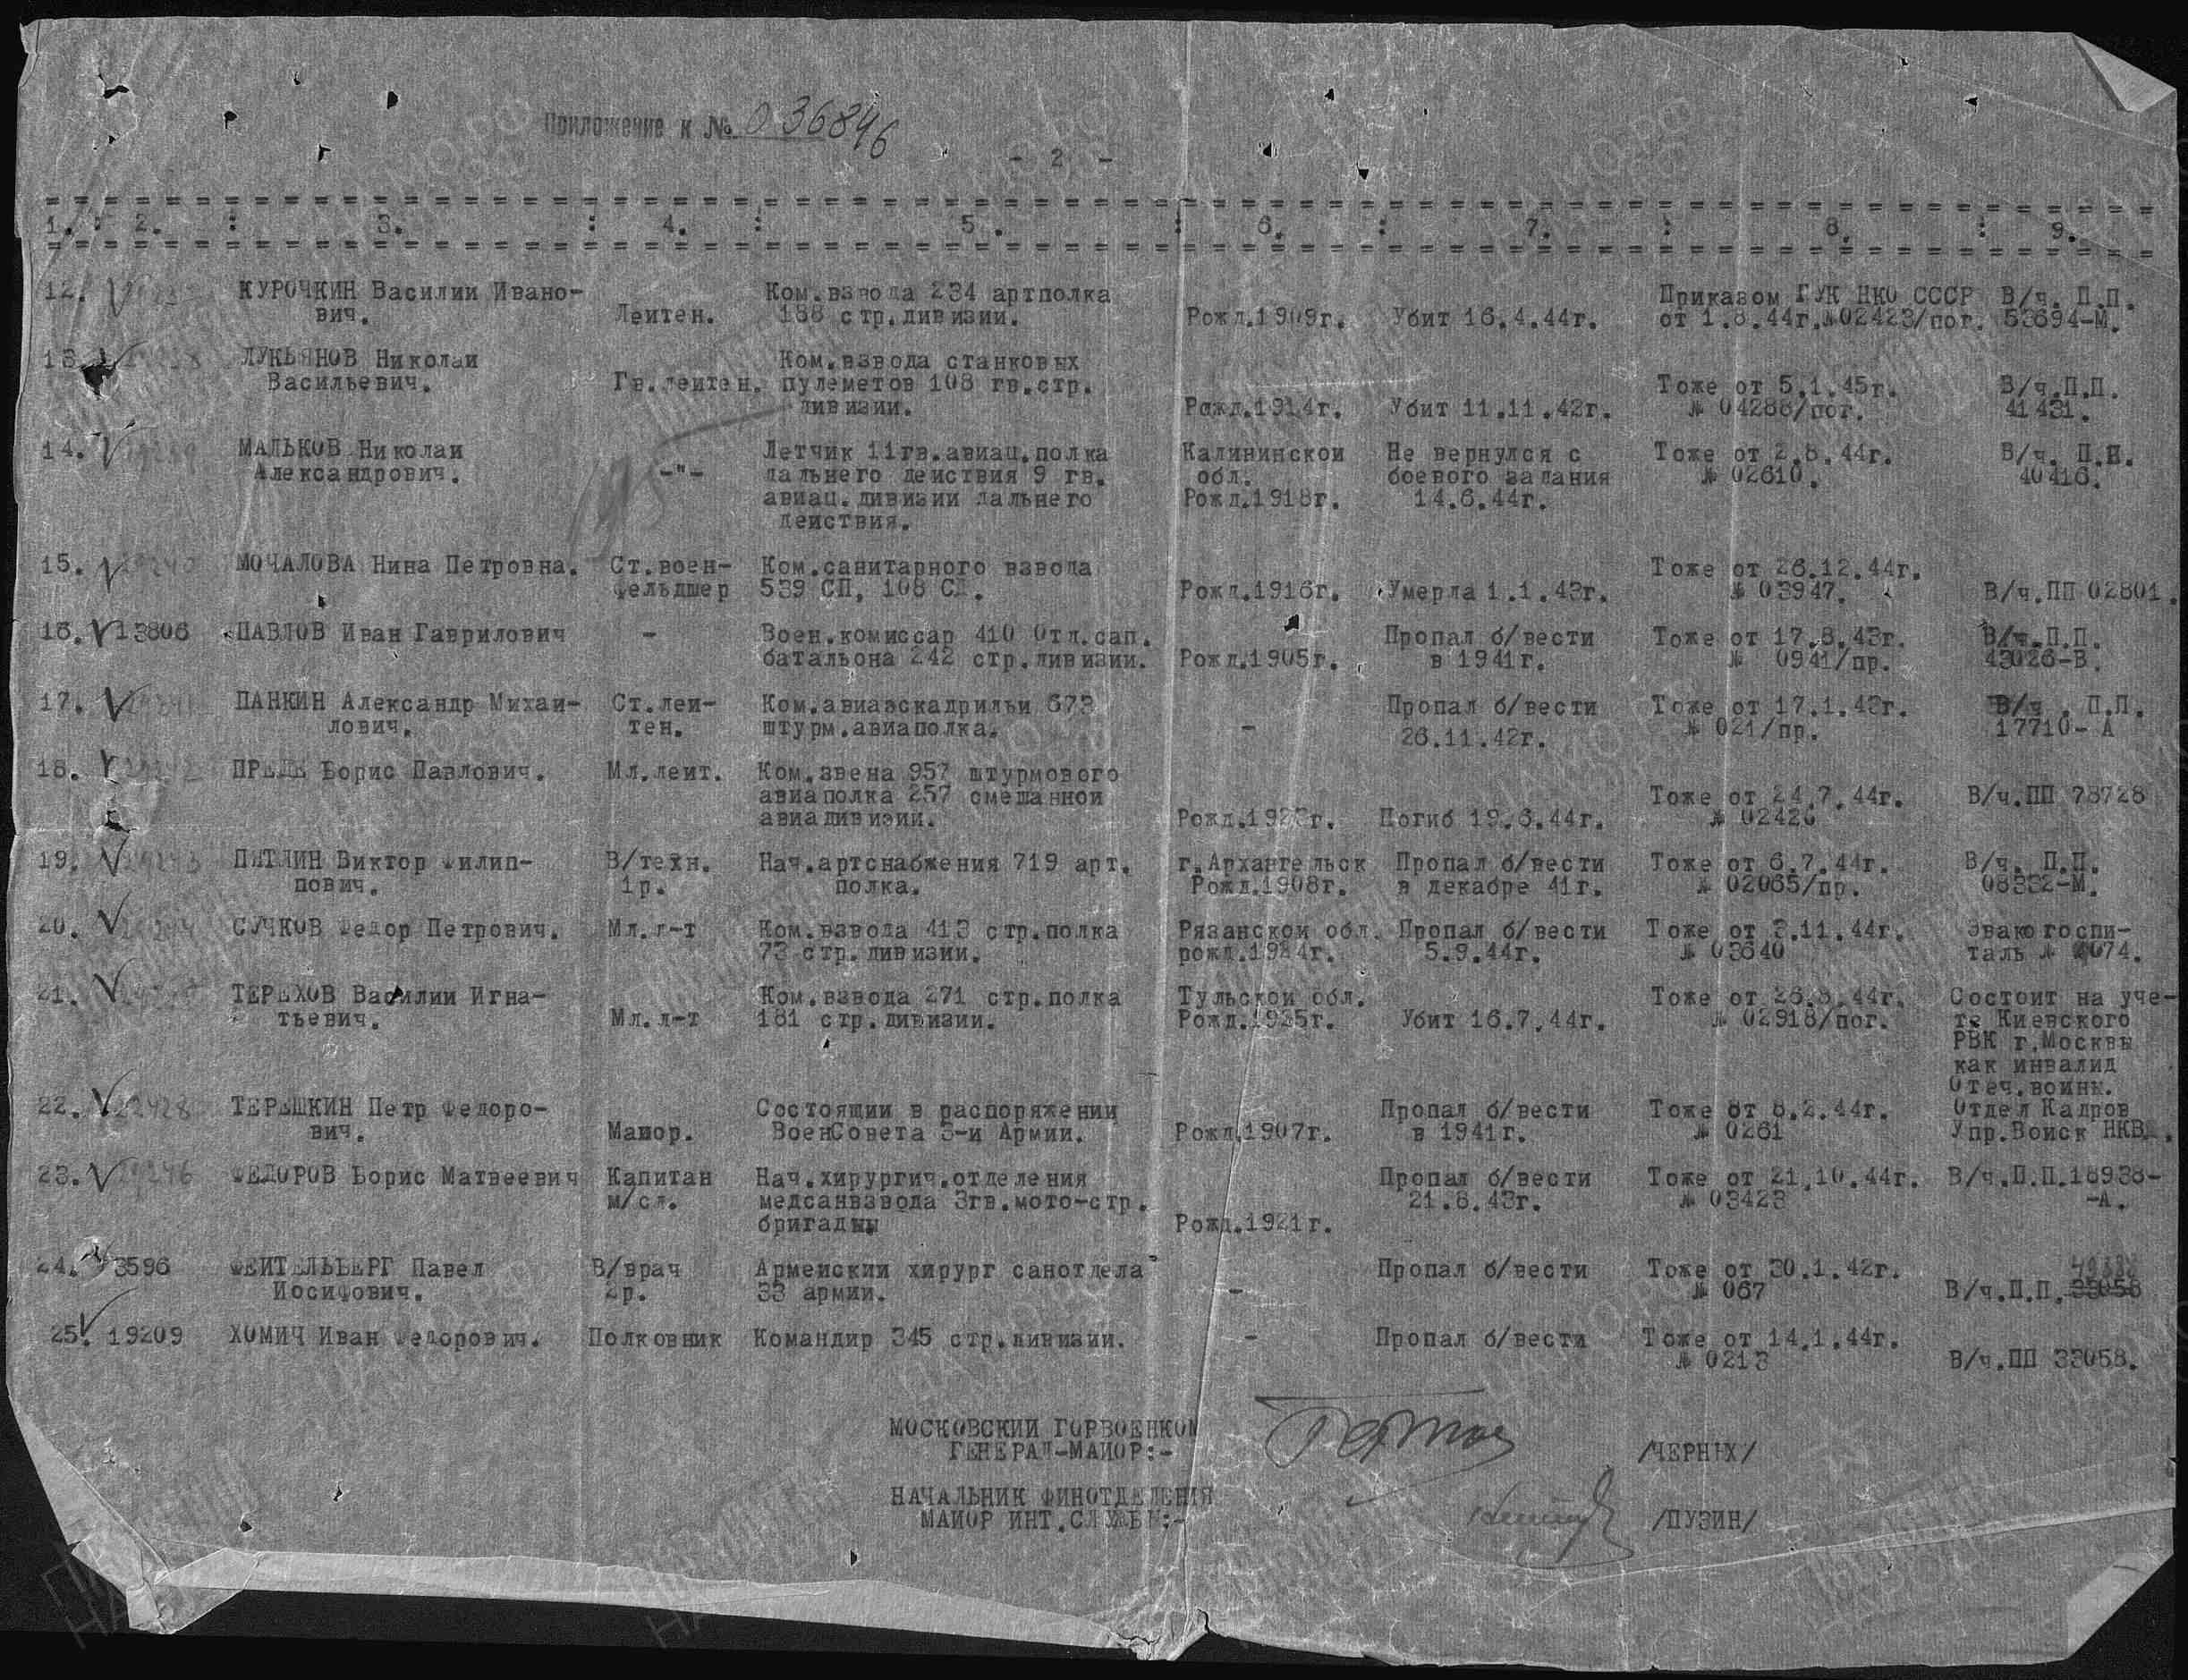 Приложение к № 036846
- 2 -
1. : 2. : 3. : 4. : 5. : 6. : 7. : 8. : 9.
12. КУРОЧКИН Василии Ивано- Ком.взвода 234 артполка Приказом ГУК НКО СССР В/ч. П.П.
вич. Леитен. 188 стр.дивизии. Рожд.1909г. Убит 16.4.44г. от 1.8.44г.№02423/пог. 53694-М.
13. ЛУКЬЯНОВ Николаи Ком.взвода станковых
Васильевич. Гв.леитен. пулеметов 108 гв.стр. Тоже от 5.1.45г. В/ч.П.П.
дивизии. Рожд.1914г. Убит 11.11.42г. № 04288/пог. 41431.
14. МАЛЬКОВ Николаи Летчик 11гв.авиац.полка Калининскои Не вернулся с Тоже от 2.8.44г. В/ч. П.П.
Александрович. -"- дальнего деиствия 9 гв. обл. боевого задания № 02610. 40416.
авиац.дивизии дальнего Рожд.1918г. 14.6.44г.
деиствия.
15. МОЧАЛОВА Нина Петровна. Ст.воен- Ком.санитарного взвода Тоже от 26.12.44г.
фельдшер 539 СП, 108 СД. Рожд.1916г. Умерла 1.1.43г. № 03947. В/ч.ПП 02801.
16. 13806 ПАВЛОВ Иван Гаврилович - Воен.комиссар 410 Отд.сап. Пропал б/вести Тоже от 17.8.43г. В/ч.П.П.
батальона 242 стр.дивизии. Рожд.1905г. в 1941г. № 0941/пр. 43026-В.
17. ПАНКИН Александр Михаи- Ст.леи- Ком.авиаэскадрильи 673 Пропал б/вести Тоже от 17.1.43г. В/ч . П.П.
лович. тен. штурм.авиаполка. - 26.11.42г. № 021/пр. 17710- А
18. Борис Павлович. Мл.леит. Ком.звена 957 штурмового
авиаполка 257 смешаннои Тоже от 24.7.44г. В/ч.ПП 78728
авиадивизии. Рожд.1923г. Погиб 19.6.44г. № 02426
19. ПЕТЛИН Виктор Филип- В/техн. Нач.артснабжения 719 арт. г.Архангельск Пропал б/вести Тоже от 6.7.44г. В/ч. П.П.
пович. 1р. полка. Рожд.1908г. в декабре 41г. № 02065/пр. 08332-М.
20. СУЧКОВ Федор Петрович. Мл.л-т Ком.взвода 413 стр.полка Рязанскои обл. Пропал б/вести Тоже от 3.11.44г. Эвакогоспи-
73 стр.дивизии. рожд.1924г. 5.9.44г. № 03640 таль № 4074.
21. ТЕРЕХОВ Василии Игна- Ком.взвода 271 стр.полка Тульскои обл. Тоже от 26.8.44г. Состоит на уче-
тьевич. Мл.л-т 181 стр.дивизии. Рожд.1925г. Убит 16.7.44г. № 02918/пог. те Киевского
РВК г.Москвы
как инвалид
Отеч.воины.
22. ТЕРЕШКИН Петр Федоро- Состоящии в распоряжении Пропал б/вести Тоже от 8.2.44г. Отдел Кадров
вич. Маиор. ВоенСовета 3-и Армии. Рожд.1907г. в 1941г. № 0261 Упр.Воиск НКВД.
23. ФЕДОРОВ Борис Матвеевич Капитан Нач.хирургич.отделения Пропал б/вести Тоже от 21.10.44г. В/ч.П.П.18938-
м/сл. медсанвзвода 3гв.мото-стр. 21.8.43г. № 03423 -А.
бригады Рожд.1921г.
24. 3596 ФЕИТЕЛЬБЕРГ Павел В/врач Армеискии хирург санотдела Пропал б/вести Тоже от 30.1.42г.
Иосифович. 2р. 33 армии. - № 067 В/ч.П.П. 33058
25. 19209 ХОМИЧ Иван Федорович. Полковник Командир 345 стр.дивизии. - Пропал б/вести Тоже от 14.1.44г.
№ 0213 В/ч.ПП 33058.
МОСКОВСКИИ ГОРВОЕНКОМ
ГЕНЕРАЛ-МАИОР:- /ЧЕРНЫХ/
НАЧАЛЬНИК ФИНОТДЕЛЕНИЯ
МАИОР ИНТ.СЛУЖБЫ:- /ПУЗИН/